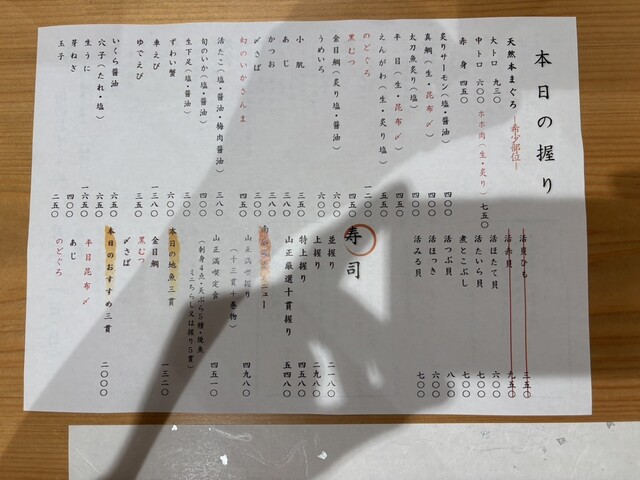 本日の握り
天然本まぐろ ー希少部位ー
大トロ 九三〇
中トロ 六〇〇 ホホ肉(生・炙り) 七五〇
赤身 四五〇
炙りサーモン(塩・醤油) 四〇〇
真鯛(生・昆布〆) 四〇〇
太刀魚炙り(塩) 四五〇
平目(生・昆布〆) 四五〇
えんがわ(生・炙り塩) 五五〇
のどぐろ 一二〇〇
黒むつ 六五〇
金目鯛(炙り塩・醤油) 六〇〇
うめいろ 六〇〇
小肌 三五〇
あじ 三八〇
かつお 三五〇
〆さば 三〇〇
幻のいかさんま 四五〇
活たこ(塩・塩・梅肉醤油) 四五〇
旬のいか(塩・醤油) 四〇〇
生下足(塩・醤油) 三五〇
ずわい蟹 六〇〇
車えび 一三八〇
ゆでえび 三五〇
いくら醤油 六五〇
穴子(たれ・塩) 六五〇
生うに 一六五〇
芽ねぎ 四五〇
玉子 二五〇
活貝ひも 三五〇
活赤貝 九五〇
活ほたて貝 六〇〇
活たいら貝 七〇〇
煮とこぶし 七〇〇
活つぶ貝 八〇〇
活ほっき 六〇〇
活みる貝 七〇〇
寿司
並握り 二一八〇
上握り 二九八〇
特上握り 四五八〇
山正厳選十貫握り 五四八〇
メニュー
山正満喫握り 四九八〇
(十三貫十巻物)
山正満喫定食 四五一〇
(刺身4点・天ぷら5種・焼魚
ミニちらし又は握り5貫)
本日の地魚三貫 一三二〇
金目鯛
黒むつ
〆さば
本日のおすすめ三貫 二〇〇〇
平目昆布〆
あじ
のどぐろ